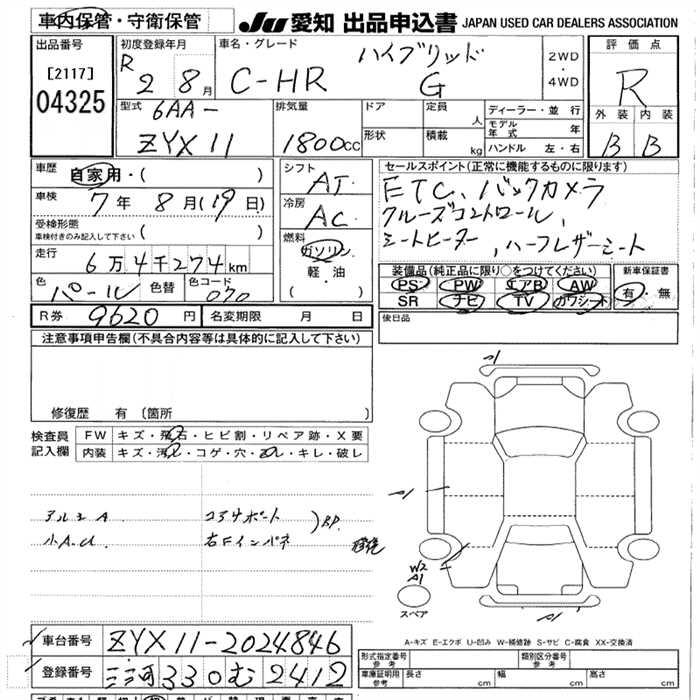 車内保管・守衛保管
JU 愛知 出品申込書 JAPAN USED CAR DEALERS ASSOCIATION
出品番号
[2117]
04325
初度登録年月
R 2 8月
車名・グレード
ハイブリッド
C-HR G
2WD
・
4WD
評価点
R
型式
6AA-
ZYX11
排気量
1800cc
ドア
定員
人
形状
積載
kg
ディーラー・並 行
モデル年式 年
ハンドル 左・右
外装 内装
B B
車歴
自家用・( )
車検
7年 8月(19日)
受検形態
車検付きのみ記入して下さい ( )
走行
6万4千274km
色
パール
色替
色コード
070
シフト
AT
冷房
AC
燃料
ガソリン
軽・油
( )
セールスポイント(正常に機能するものに限ります)
ETC、バックカメラ
クルーズコントロール、
シートヒーター、ハーフレザーシート
装備品(純正品に限り○をつけてください)
PS PW エアB AW
SR ナビ TV カワシート
新車保証書
有・無
R券 9620円
名変期限 月 日
後日品
注意事項申告欄(不具合内容等は具体的に記入して下さい)
修復歴 有 〔箇所 〕
検査員
記入欄
FW キズ・飛石・ヒビ割・リペア跡・X要
内装 キズ・汚レ・コゲ・穴・スレ・キレ・破レ
アルミA
小A.U
コアサポート
右Fインパネ
A1
A1
W2
A1
A1
スペア
A-キズ E-エクボ U-凹み W-補修跡 S-サビ C-腐食 XX-交換済
車台番号 ZYX11-2024846
登録番号 三河330む2412
形式指定番号
参考
類別区分番号
参考
車庫証明用
参考
長さ cm
幅 cm
高さ cm